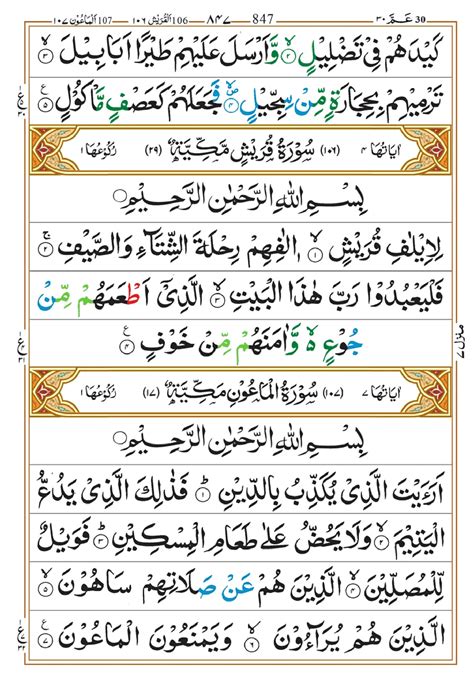 ١٠٧ الماعون 107 ١٠٦ القريش 106 ٨٤٧ 847 ٣٠ عمّ 30
كَيْدَهُمْ فِيْ تَضْلِيْلٍ ۙ۝۲ وَّاَرْسَلَ عَلَيْهِمْ طَيْرًا اَبَابِيْلَ ۙ۝۳
تَرْمِيْهِمْ بِحِجَارَةٍ مِّنْ سِجِّيْلٍ ۪ۙ۝۴ فَجَعَلَهُمْ كَعَصْفٍ مَّاْكُوْلٍ ۝۵
اٰيَاتُهَا ۴ (۱۰۶) سُوْرَةُ قُرَيْشٍ مَكِّيَّةٌ (۲۹) رُكُوْعُهَا ۱
بِسْمِ اللّٰهِ الرَّحْمٰنِ الرَّحِيْمِ ۝
لِاِيْلٰفِ قُرَيْشٍ ۙ۝۱ اٖلٰفِهِمْ رِحْلَةَ الشِّتَآءِ وَالصَّيْفِ ۚ۝۲
فَلْيَعْبُدُوْا رَبَّ هٰذَا الْبَيْتِ ۙ۝۳ الَّذِيْٓ اَطْعَمَهُمْ مِّنْ
جُوْعٍ ۙ۬ وَّاٰمَنَهُمْ مِّنْ خَوْفٍ ۝۴
منزل ۷
اٰيَاتُهَا ۷ (۱۰۷) سُوْرَةُ الْمَاعُوْنِ مَكِّيَّةٌ (۱۷) رُكُوْعُهَا ۱
بِسْمِ اللّٰهِ الرَّحْمٰنِ الرَّحِيْمِ ۝
اَرَءَيْتَ الَّذِيْ يُكَذِّبُ بِالدِّيْنِ ۝۱ فَذٰلِكَ الَّذِيْ يَدُعُّ
الْيَتِيْمَ ۙ۝۲ وَلَا يَحُضُّ عَلٰى طَعَامِ الْمِسْكِيْنِ ۝۳ فَوَيْلٌ
لِّلْمُصَلِّيْنَ ۙ۝۴ الَّذِيْنَ هُمْ عَنْ صَلَاتِهِمْ سَاهُوْنَ ۙ۝۵
الَّذِيْنَ هُمْ يُرَآءُوْنَ ۙ۝۶ وَيَمْنَعُوْنَ الْمَاعُوْنَ ۝۷